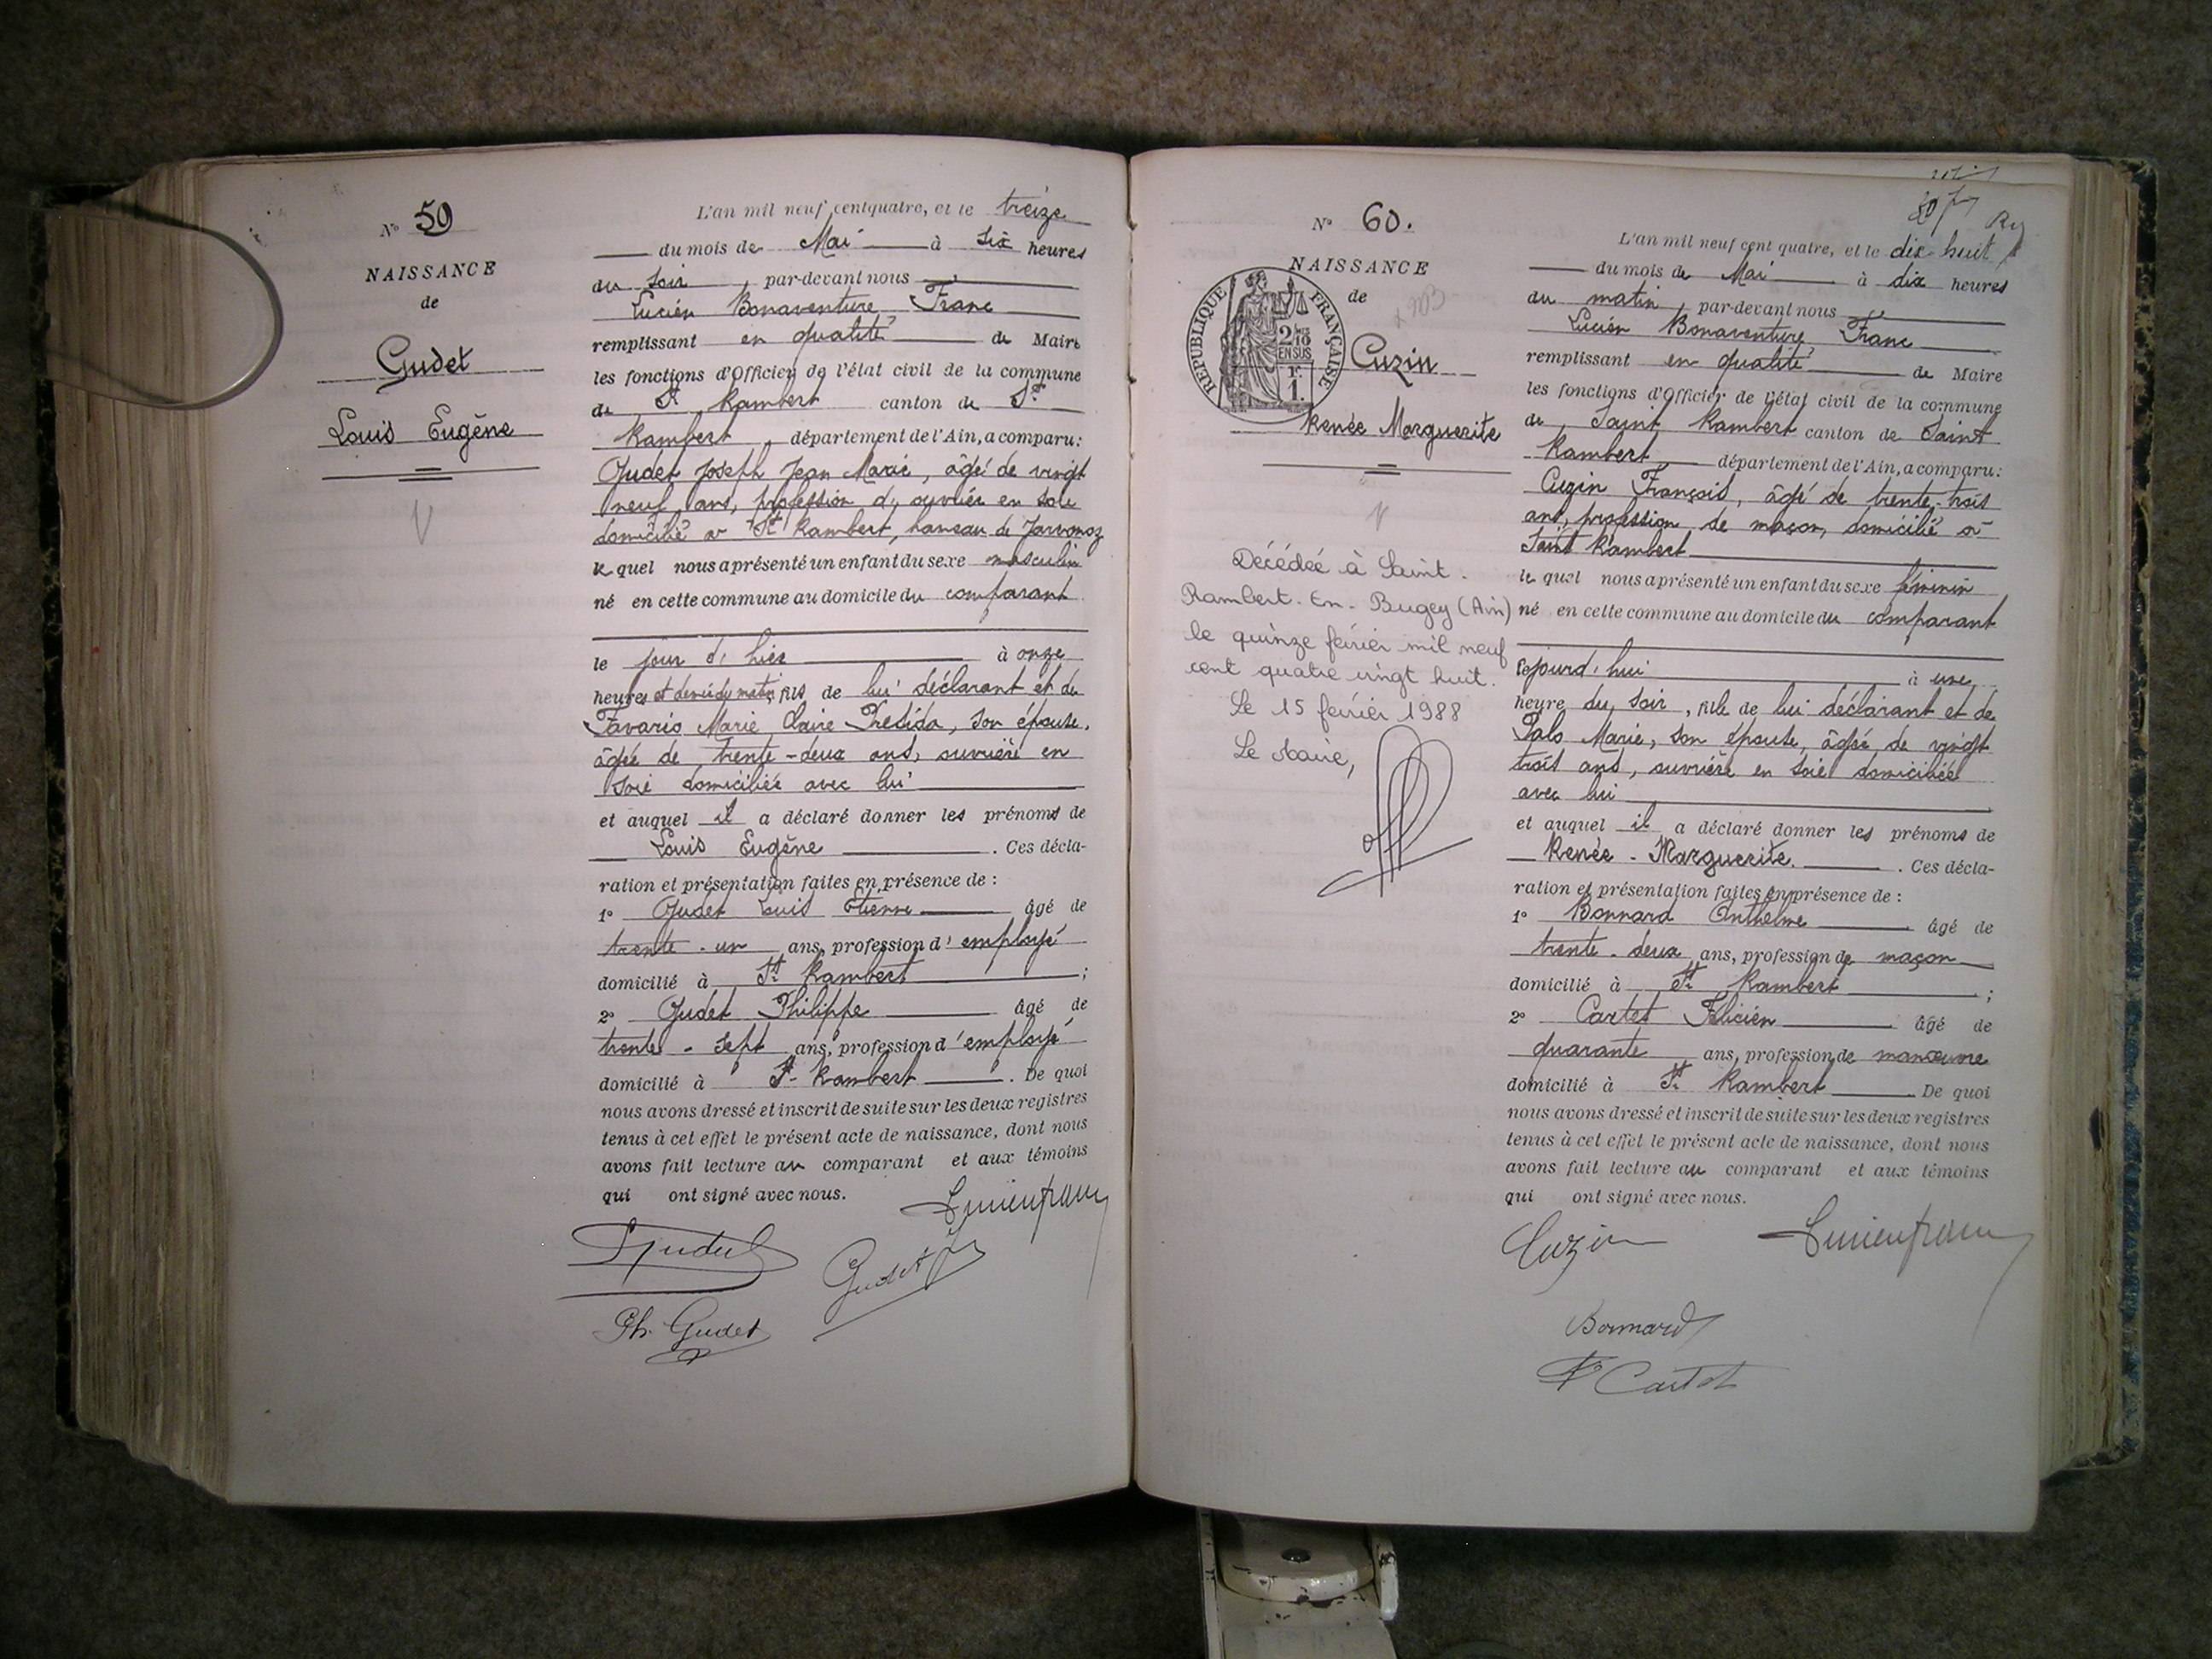 N° 59
NAISSANCE
de
Gudet
Louis Eugène
L'an mil neuf cent quatre, et le treize
du mois de Mai à six heures
du soir, par-devant nous
Lucien Bonaventure Franc
remplissant en qualité de Maire
les fonctions d'Officier de l'état civil de la commune
de St Rambert canton de St
Rambert, département de l'Ain, a comparu:
Gudet Joseph Jean Marie, âgé de vingt
neuf ans, profession d'ouvrier en soie
domicilié à St Rambert, hameau de Javornoz
lequel nous a présenté un enfant du sexe masculin
né en cette commune au domicile du comparant
le jour d'hier à onze
heures et demie du matin, fils de lui déclarant et de
Favario Marie Claire son épouse,
âgée de trente-deux ans, ouvrière en
soie domiciliée avec lui
et auquel il a déclaré donner les prénoms de
Louis Eugène. Ces décla-
ration et présentation faites en présence de:
1° Gudet Louis Etienne âgé de
trente-un ans, profession d'employé
domicilié à St Rambert;
2° Gudet Philippe âgé de
trente-sept ans, profession d'employé
domicilié à St Rambert. De quoi
nous avons dressé et inscrit de suite sur les deux registres
tenus à cet effet le présent acte de naissance, dont nous
avons fait lecture au comparant et aux témoins
qui ont signé avec nous.
Lucien franc
Gudet
Gudet J
Ph. Gudet
N° 60.
NAISSANCE
de
RÉPUBLIQUE FRANÇAISE
2/10 EN SUS
1 F.
Cuzin
Renée Marguerite
Décédée à Saint-
Rambert-En-Bugey (Ain)
le quinze février mil neuf
cent quatre vingt huit.
Le 15 février 1988
Le Maire,
L'an mil neuf cent quatre, et le dix huit
du mois de Mai à dix heures
du matin, par-devant nous
Lucien Bonaventure Franc
remplissant en qualité de Maire
les fonctions d'Officier de l'état civil de la commune
de Saint Rambert canton de Saint
Rambert département de l'Ain, a comparu:
Cuzin François, âgé de trente-trois
ans, profession de maçon, domicilié à
Saint Rambert
lequel nous a présenté un enfant du sexe féminin
né en cette commune au domicile du comparant
cejourd'hui à une
heure du soir, fille de lui déclarant et de
Marie, son épouse, âgée de vingt
trois ans, ouvrière en soie domiciliée
avec lui
et auquel il a déclaré donner les prénoms de
Renée-Marguerite. Ces décla-
ration et présentation faites en présence de:
1° Bonnard Anthelme âgé de
trente-deux ans, profession de maçon
domicilié à St Rambert;
2° Cartet Félicien âgé de
quarante ans, profession de manœuvre
domicilié à St Rambert. De quoi
nous avons dressé et inscrit de suite sur les deux registres
tenus à cet effet le présent acte de naissance, dont nous
avons fait lecture au comparant et aux témoins
qui ont signé avec nous.
Cuzin
Lucien franc
Bonnard
F Cartet